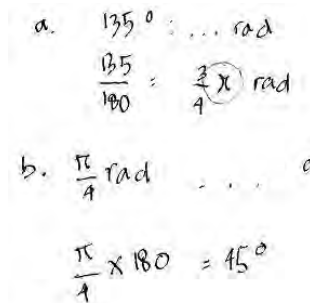 a. 135° : ... rad
135/180 = 3/4 π rad
b. π/4 rad ... o
π/4 × 180 = 45°